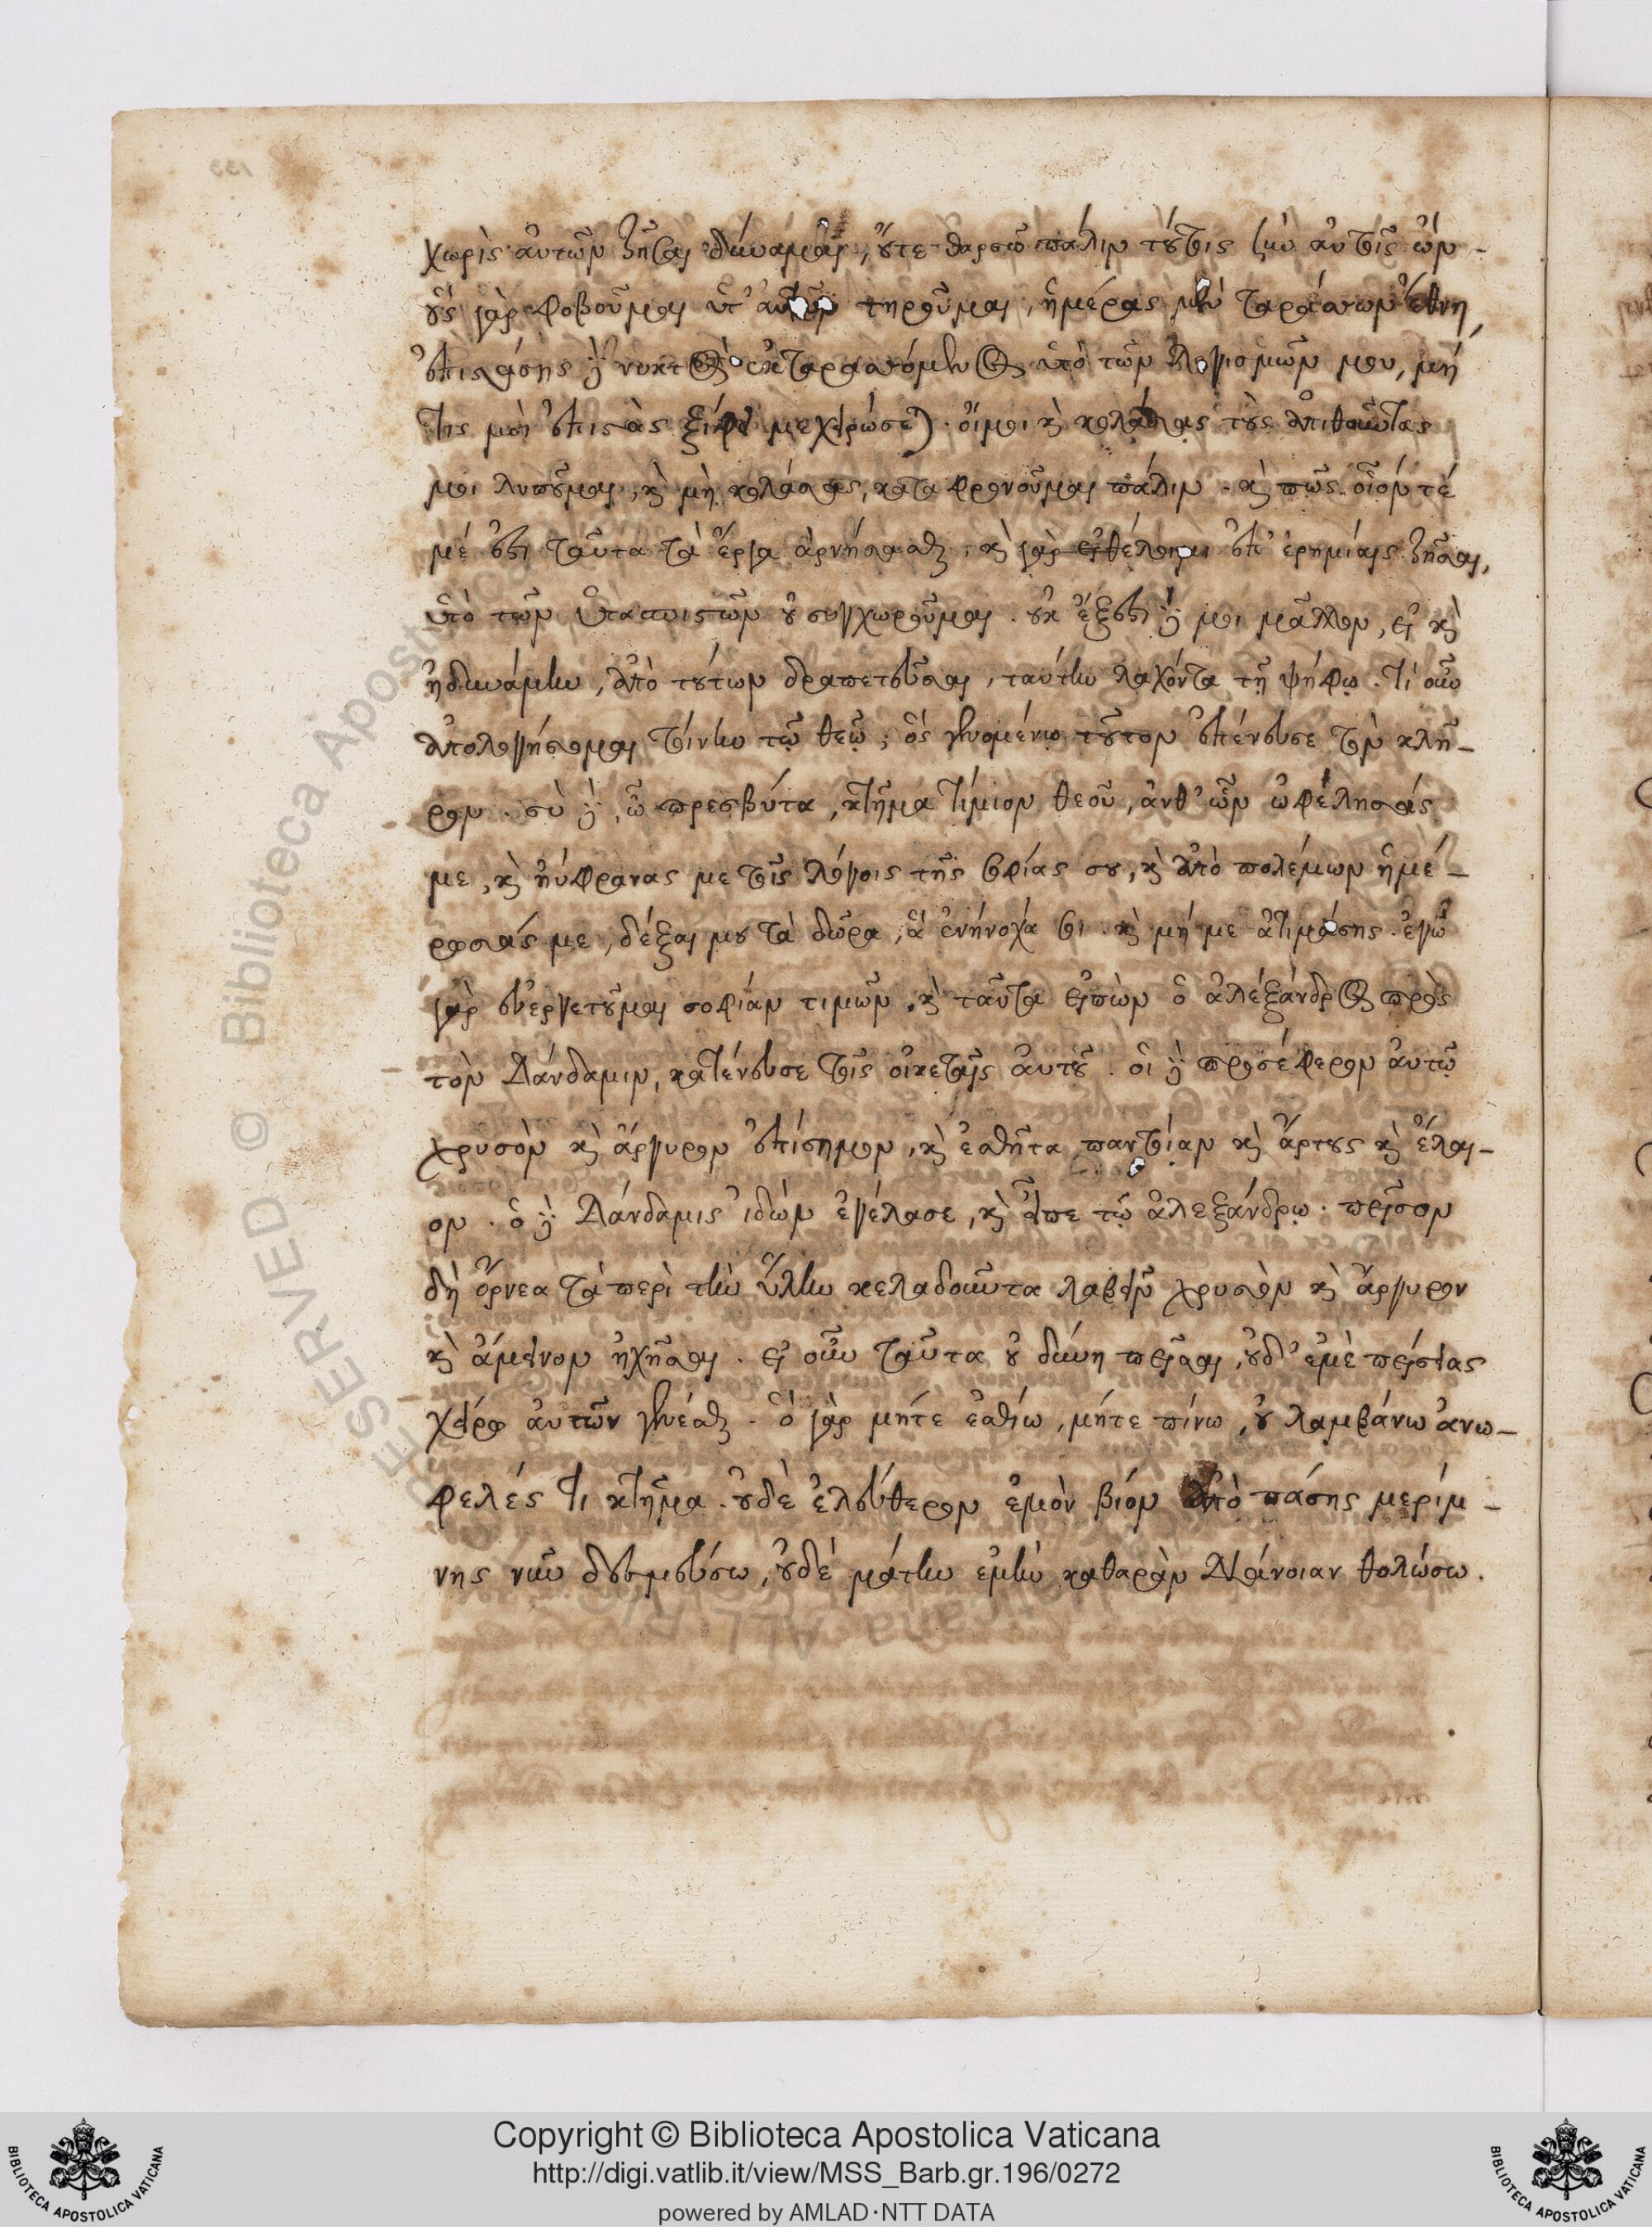 χωρὶς αὐτῶν ζῆσαι δύναμαι, οὔτε θαρσῶ πάλιν τούτοις σὺν αὐτοῖς ὤν –
οὓς γὰρ φοβοῦμαι ὑπ' αὐτῶν τηροῦμαι, ἡμέρας μὲν ταράσσων ἔθνη,
ἐπιστάσης δὲ νυκτὸς ἐκταρασσόμενος ὑπὸ τῶν λογισμῶν μου, μή
τις μοι ἐπιστὰς ξίφει με χειρώσεται. οἴμοι καὶ κολάσας τοὺς ἀπιθοῦντας
μοι λυποῦμαι, καὶ μὴ κολάσας, καταφρονοῦμαι πάλιν. καὶ πῶς οἷόν τέ
μέ ἐστι ταῦτα τὰ ἔργα ἀρνήσασθαι. καὶ γὰρ εἰ θέλοιμι ἐπ' ἐρημίαις ζῆσαι,
ὑπὸ τῶν ὑπασπιστῶν οὐ συγχωροῦμαι. οὐκ ἔξεστι δέ μοι μᾶλλον, εἰ καὶ
ἠδυνάμην, ἀπὸ τούτων δραπετεῦσαι, ταύτην λαχόντα τῇ ψήφῳ. τί οὖν
ἀπολογήσομαι τοίνυν τῷ θεῷ; ὅς γενομένῳ τοῦτον ἐπένευσε τὸν κλῆ–
ρον. σὺ δὲ, ὦ πρεσβύτα, κτῆμα τίμιον θεοῦ, ἀνθ' ὧν ὠφέλησάς
με, καὶ ηὔφρανας με τοῖς λόγοις τῆς σοφίας σου, καὶ ἀπὸ πολέμων ἡμέ–
ρωσάς με, δέξαι μου τὰ δῶρα, ἃ ἐνήνοχά σοι. καὶ μή με ἀτιμάσης. ἐγὼ
γὰρ εὐεργετοῦμαι σοφίαν τιμῶν. καὶ ταῦτα εἰπὼν ὁ ἀλέξανδρος πρὸς
τὸν Δάνδαμιν, κατένευσε τοῖς οἰκέταις αὐτοῦ. οἱ δὲ προσέφερον αὐτῷ
χρυσὸν καὶ ἄργυρον ἐπίσημον, καὶ ἐσθῆτα παντοίαν καὶ ἄρτους καὶ ἔλαι–
ον. ὁ δὲ Δάνδαμις ἰδὼν ἐγέλασε, καὶ εἶπε τῷ ἀλεξάνδρῳ. πεῖσον
δὴ ὄρνεα τὰ περὶ τὴν ὕλην κελαδοῦντα λαβεῖν χρυσὸν καὶ ἄργυρον
καὶ ἄμεινον ἠχῆσαι. εἰ οὖν ταῦτα οὐ δύνῃ πεῖσαι, οὐδ' ἐμὲ πείσειας
χείρω αὐτῶν γενέσθαι. ὃ γὰρ μήτε ἐσθίω, μήτε πίνω, οὐ λαμβάνω ἀνω–
φελές τι κτῆμα. οὐδὲ ἐλεύθερον ἐμὸν βίον ἀπὸ πάσης μερίμ–
νης νῦν δεσμεύσω, οὐδὲ μάτην ἐμὴν καθαρὰν διάνοιαν θολώσω.
Copyright © Biblioteca Apostolica Vaticana
http://digi.vatlib.it/view/MSS_Barb.gr.196/0272
powered by AMLAD·NTT DATA
BIBLIOTECA APOSTOLICA VATICANA
BIBLIOTECA APOSTOLICA VATICANA